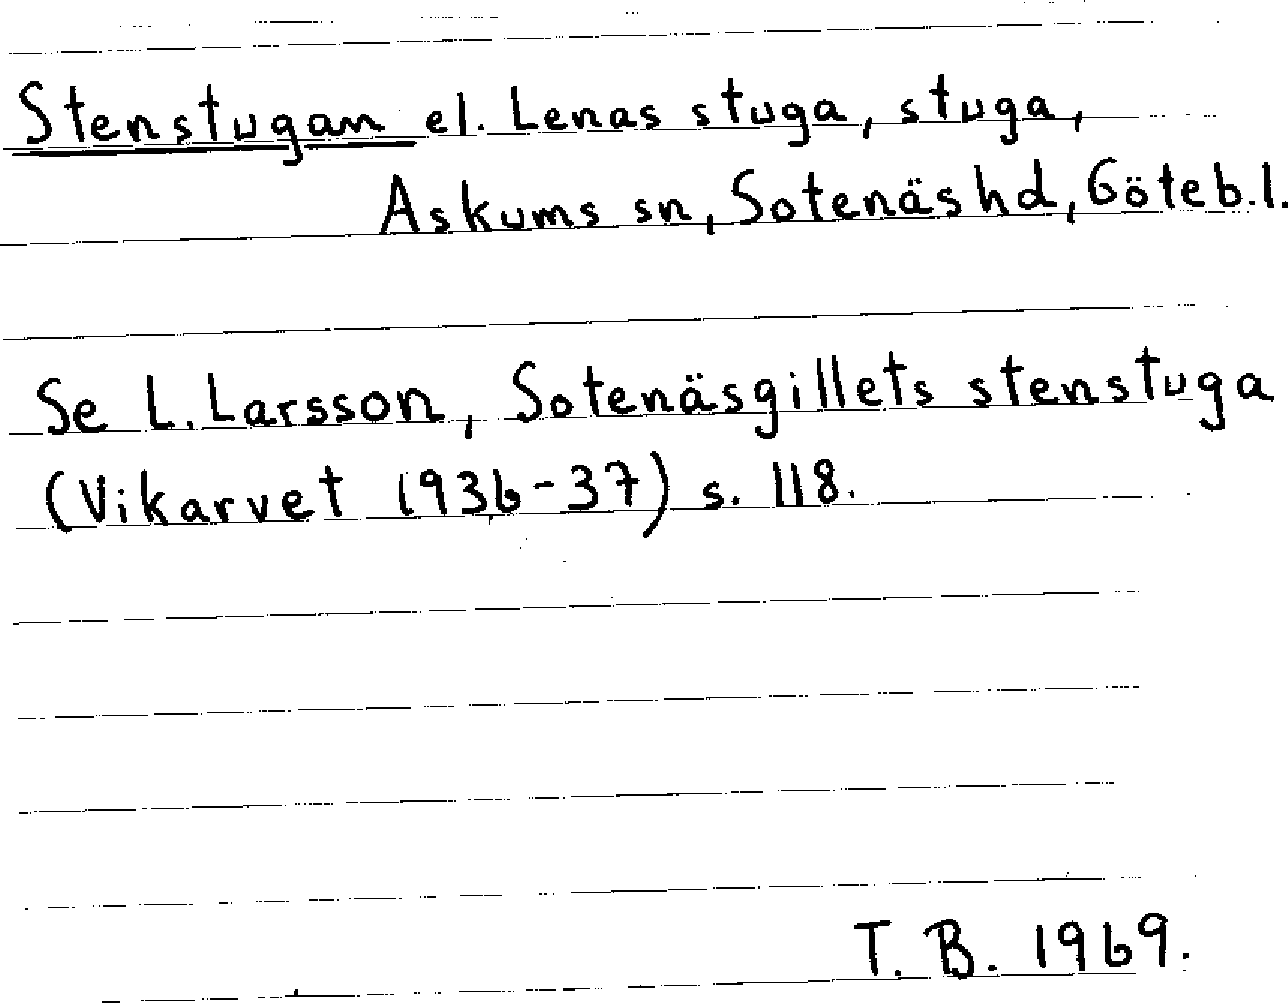 Stenstugan el. Lenas stuga, stuga,
Askums sn, Sotenäs hd, Göteb.l.
Se L. Larsson, Sotenäsgillets stenstuga
(Vikarvet 1936-37) s. 118.
T. B. 1969.